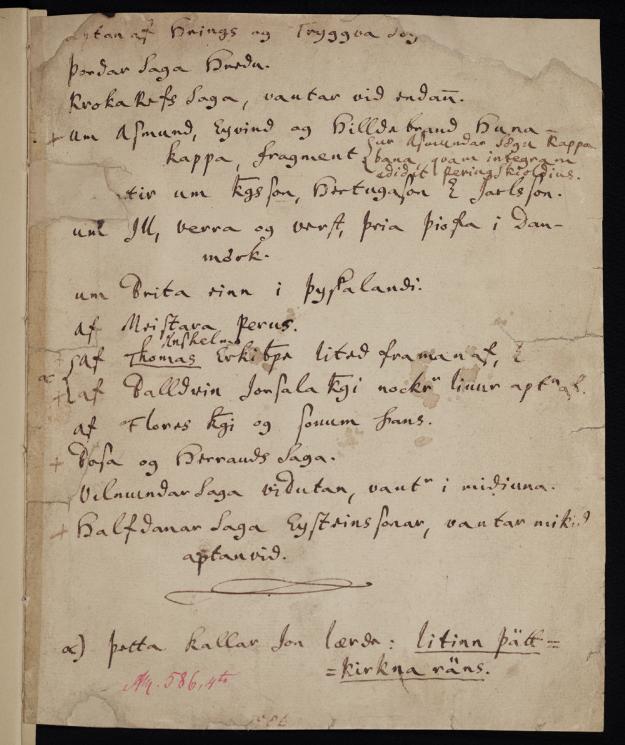 aptan af Hrings og Tryggva Sog
Þordar Saga Hredu.
Kroka Refs Saga, vantar vid endan̄.
+ um Asmund, Eyvind og Hilldebrand Huna=
kappa, fragment
sur Asmundar Saga Kappa
bana, qvam integram
edidit Peringskioldius.
um kgsson, Hertugason & Jarlsson.
um Ill, verra og verst, þria þiofa i Dan-
mörk.
um Brita einn i Þyskalandi.
af Meistara Perus.
Anshelmo
af Thomas Erkibpe lited framanaf, &
α + af Balldvin Jorsala kgi nockr linur aptanaf.
af Flores kgi og sonum hans.
+ Bosa og Herrauds Saga.
Vilmundar Saga vidutan, vantr i midiuna.
+ Halfdanar Saga Eysteinssonar, vantar mikid
aptanvid.
α) Þetta kallar Jon lærde: litinn þätt=
=kirkna räns.
AM. 586, 4to